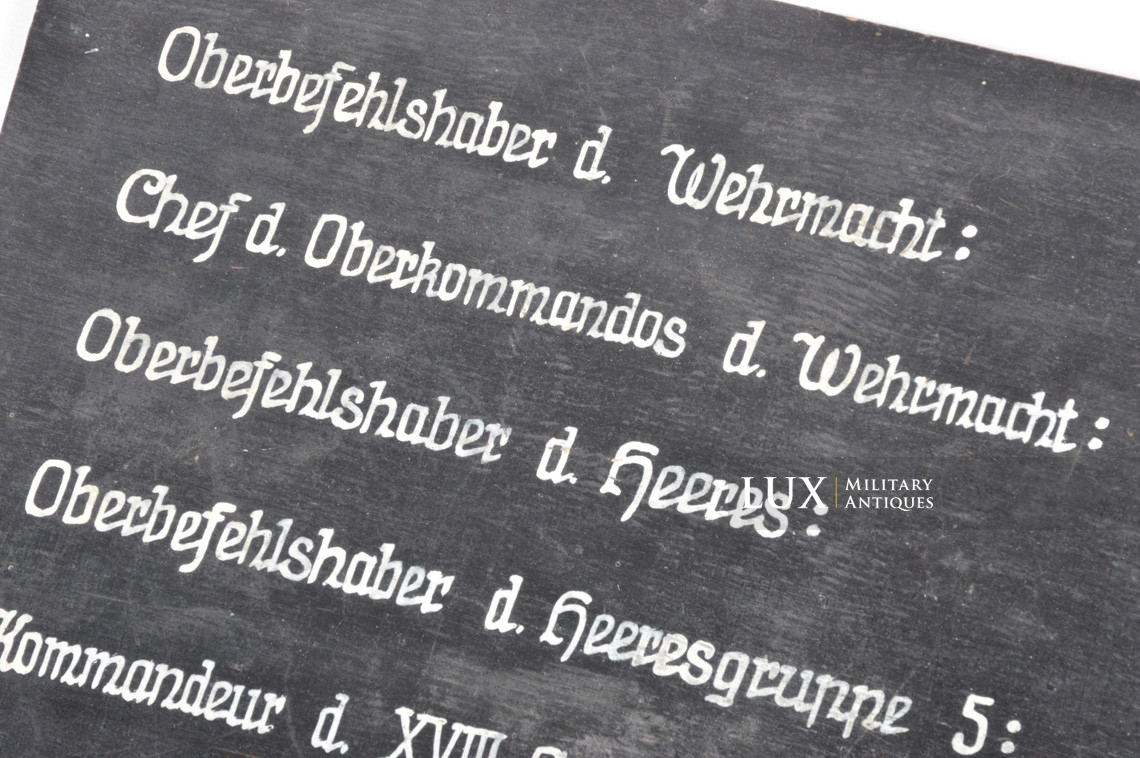 Oberbefehlshaber d. Wehrmacht:
Chef d. Oberkommandos d. Wehrmacht:
Oberbefehlshaber d. Heeres:
Oberbefehlshaber d. Heeresgruppe 5:
Kommandeur d. XVIII
LUX MILITARY
ANTIQUES